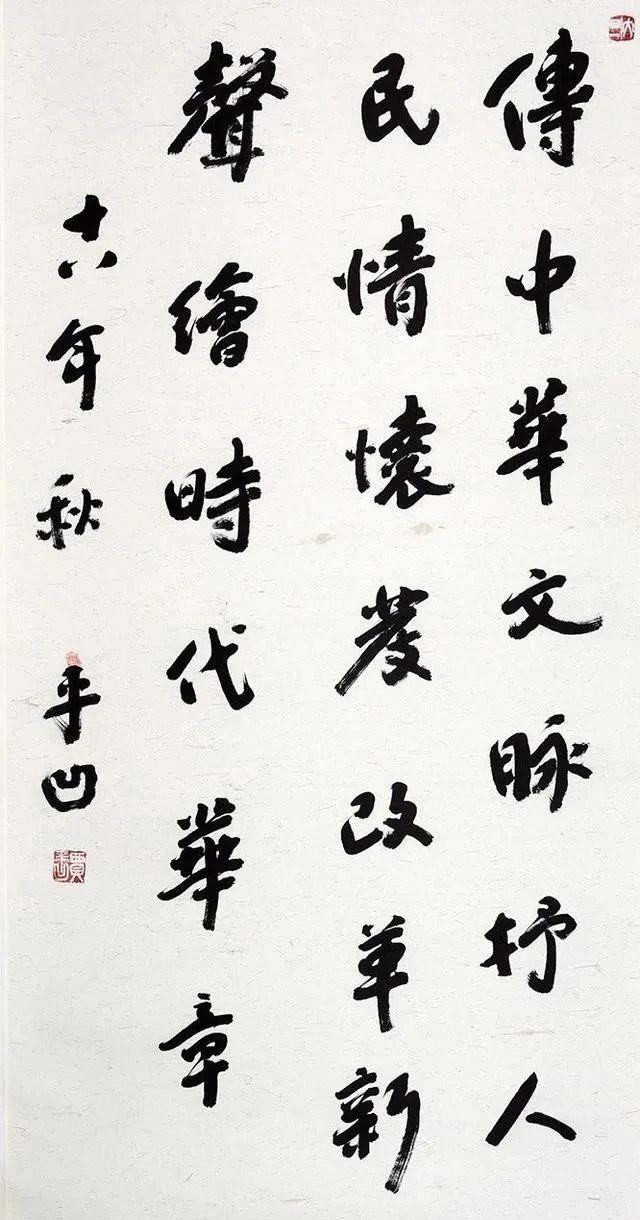 傳中華文脉抒人
民情懷發改革新
聲繪時代華章
十八年秋
平凹